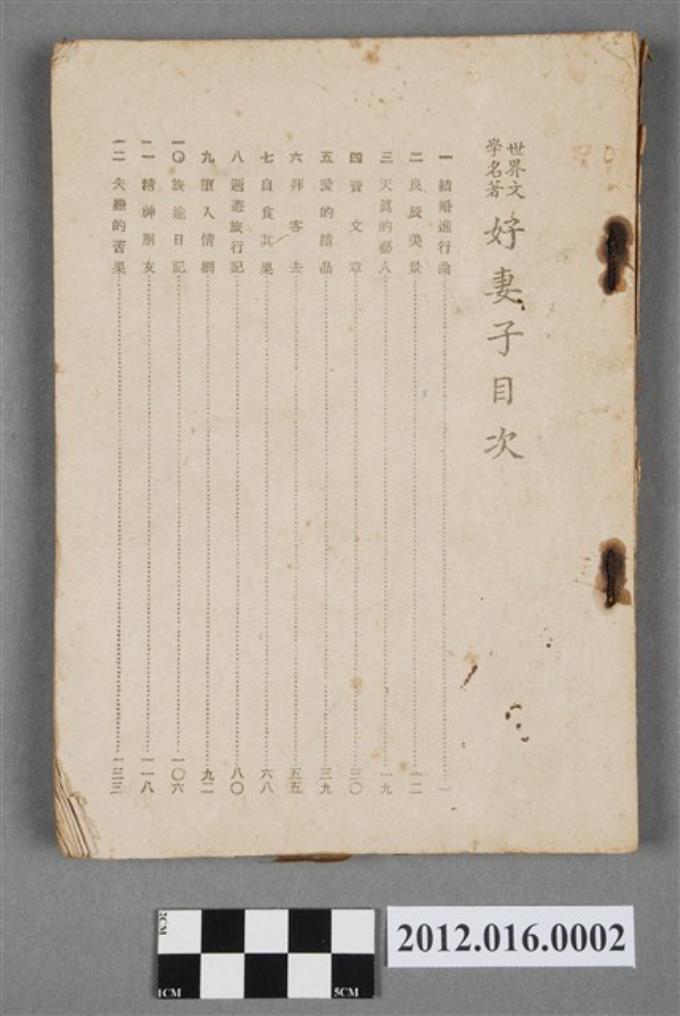 世界文學名著 好妻子目次
一 結婚進行曲 一
二 良辰美景 一二
三 天真的藝人 一九
四 賣文章 三〇
五 愛的結晶 三九
六 拜客去 五五
七 自食其果 六八
八 週遊旅行記 八〇
九 墮入情網 九二
一〇 旅途日記 一〇六
一一 精神朋友 一一八
一二 失戀的苦果 一三三
2CM
1CM
5CM
2012.016.0002